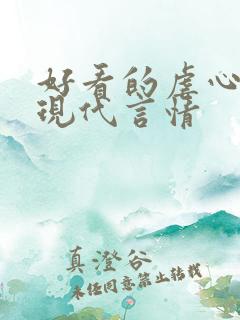 好看的虐心
現代言情
真澄谷
未经同意禁止转载